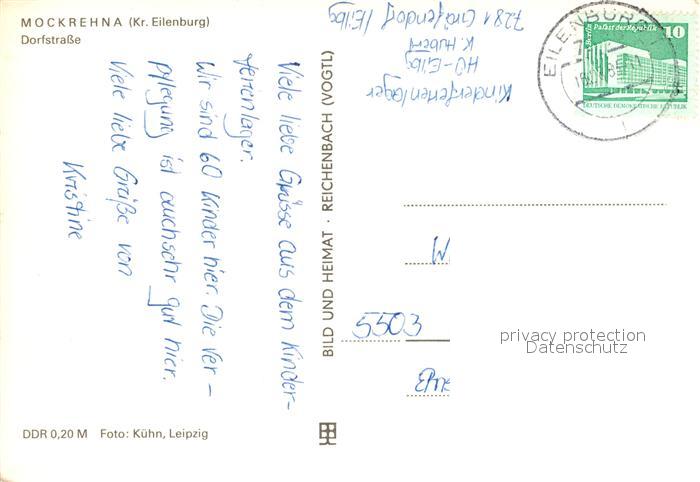 MOCKREHNA (Kr. Eilenburg)
Dorfstraße
Viele liebe Grüsse aus dem Kinder-
ferienlager.
Wir sind 60 Kinder hier. Die Ver-
pflegung ist auch sehr gut hier.
Viele liebe Grüße von
Kristine
DDR 0,20 M Foto: Kühn, Leipzig
BILD UND HEIMAT · REICHENBACH (VOGTL)
Kinderferienlager
HO-Eilbg
K. Hubert
7281 Gräfendorf /Eilbg
EILENBURG
1
Berlin Palast der Republik
10
DEUTSCHE DEMOKRATISCHE REPUBLIK
W
5503
privacy protection
Datenschutz